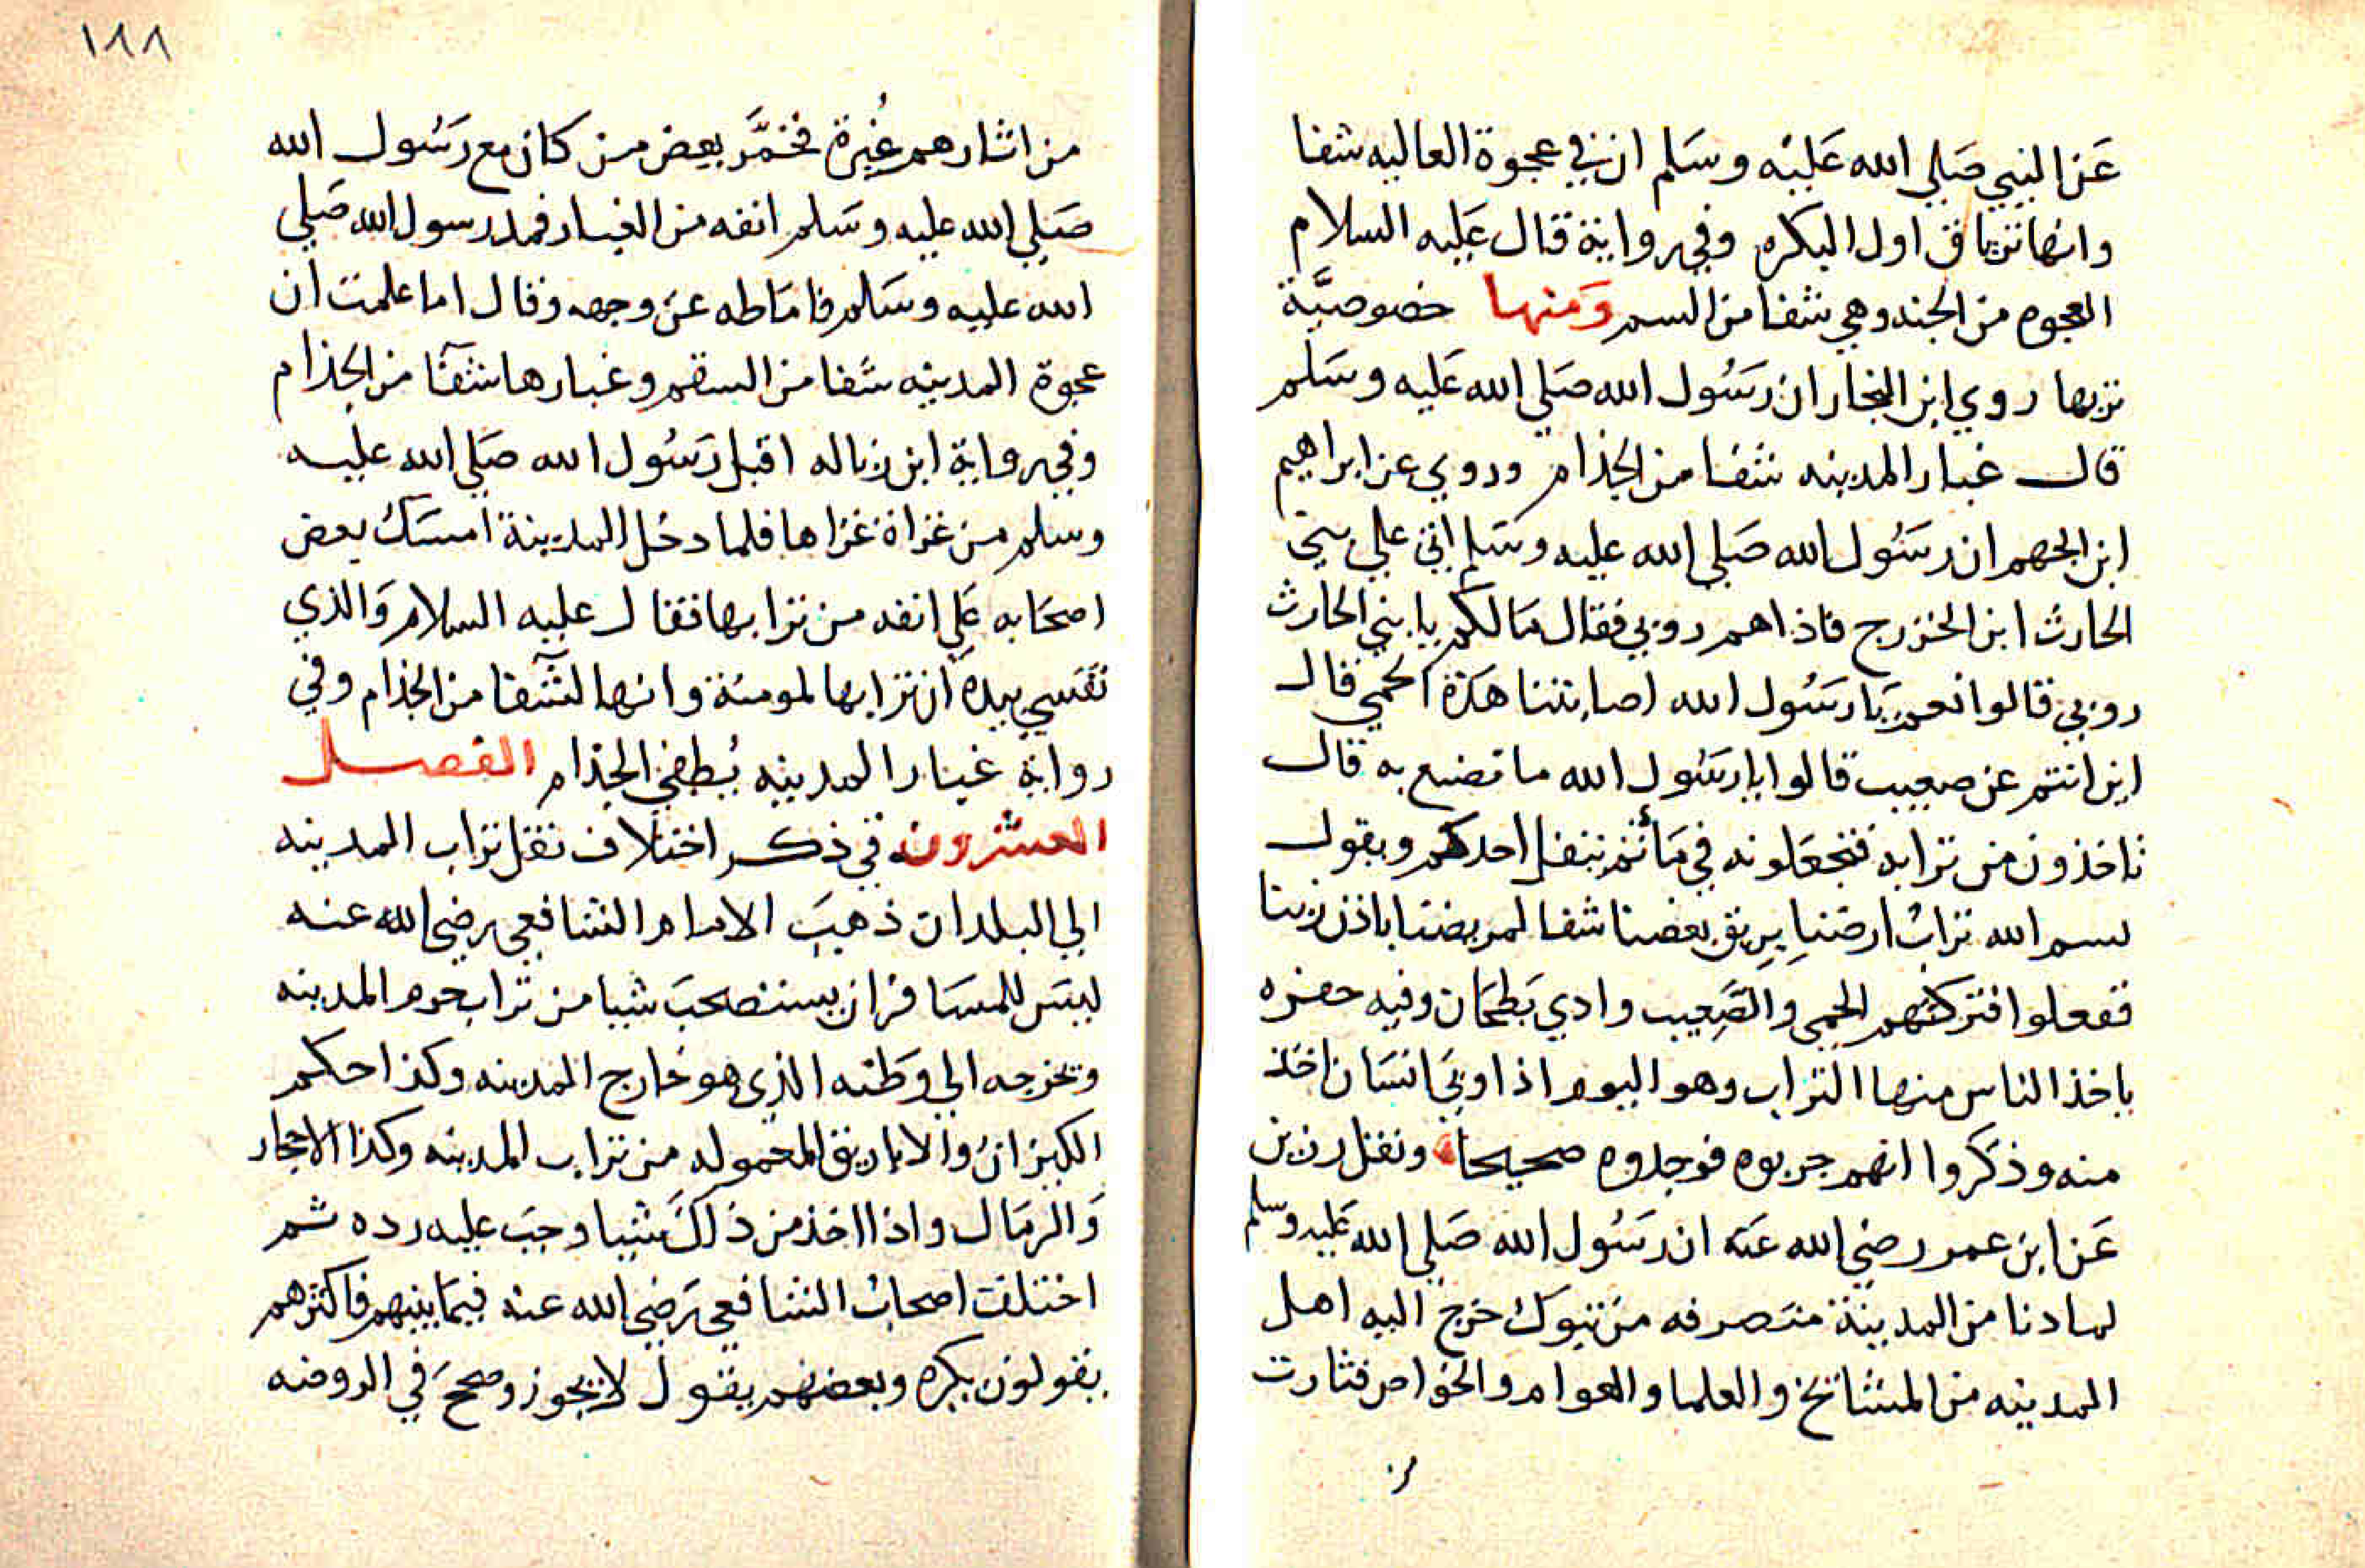 عَن النبي صَلي الله عَليْه وسَلم ان في عجوة العاليه شفا
وانها ترياق اول البكره وفي رواية قال عَليه السلام
العجوه من الجنه وهي شفا من السم وَمنها خصوصيَّة
تربها روي ابن النجار ان رَسُول الله صَلي الله عَليه وسَلم
قال غبار المدينه شفا من الجذام وروي عن ابراهيم
ابن الجهم ان رسَول الله صَلي الله عليه وسَلم اتي علي بني
الحارث ابن الخزرج فاذا هم روبي فقال مَالكم يا بني الحارث
روبي قالوا نعم يَا رسَول الله اصابتنا هَذه الحمي قال
اين انتم عن صعيب قالوا يا رسَول الله ما نصنع به قال
تاخذون من ترابه فتجعَلونه في مَاً ثم يتفل احدكم ويقول
بسم الله ترابُ ارضنا بِريق بعضنا شفا لمريضنا باذن ربنا
ففعلوا فتركتهم الحمي والصَّعيب وادي بَطحَان وفيه حفره
ياخذ الناس منها التراب وهو اليوم اذا وبَي انسَان اخَذ
منه وذكروا انهم جربوه فوجدوه صحيحا ونقل رزين
عَن ابن عمر رضي الله عَنه ان رسَول الله صَلي الله عَليه وسلم
لما دنا من المدينة منصرفه من تبوك خرج اليه اهل
المدينه من المشائخ والعلما والعوام والخواص فثارت
من
١٨٨
من اثارهم غُبرة فخمَّر بعض من كان مع رَسُول الله
صَلي الله عليه وسَلم انفه من الغبار فمد رسول الله صَلي
الله عليه وسَلم فامَاطه عن وجهه وقال اما علمت ان
عجوة المدينه شفا من السقم وغبارها شفآً من الجذام
وفي رواية ابن زباله اقبل رَسُول الله صَلي الله عليه
وسلم من غزاة غزاها فلما دخل المدينة امسَكَ بعض
اصحَابه عَلي انفه من ترابها فقال عليه السلام وَالذي
نفسي بيده ان ترابها لمومنة وانها لشفآ من الجذام وفي
رواية غبار المدينه يُطفي الجذام الفصل
العشرون في ذكر اختلاف نقل تراب المدينه
الي البلدان ذهبَ الامام الشافعي رضي الله عنه
ليسَ للمسَافر ان يستصحبَ شيا من تراب حرم المدينه
ويخرجه الي وَطنه الذي هو خارج المدينه وكذا حكم
الكيزان والاباريق المعموله من تراب المدينه وكذا الاحجار
وَالرمَال واذا اخذ من ذلكَ شيا وجبَ عليه رده ثم
اختلفت اصحاب الشافعي رَضي الله عنه فيمَا بينهم فاكثرهم
يقولون يكره وبعضهم يقول لا يجوز وصححَ في الروضه